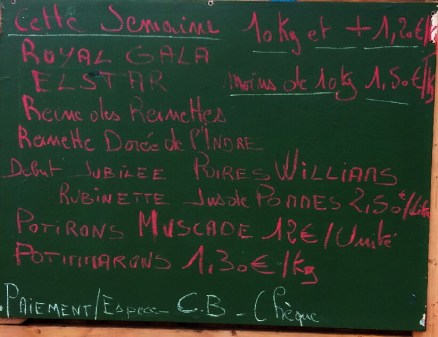 Cette Semaine 10Kg et + 1,20€/K
ROYAL GALA
ELSTAR moins de 10Kg 1,50€/Kg
Reine des Reinettes
Reinette Dorée de l'INDRE
Debut JUBILEE POIRES WILLIAMS
RUBINETTE Jus de POMMES 2,50€/Litre
POTIRONS MUSCADE 12€/Unité
POTIMARONS 1,30€/Kg
PAIEMENT/Espece - C.B - Chèque